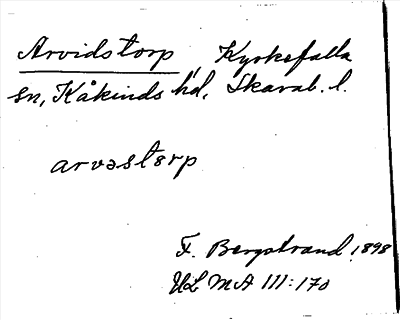 Arvidstorp, Kyrkefalla
sn, Kåkinds hd, Skarab. l.
arvastorp
F. Bergstrand 1898
ULMA 111:170